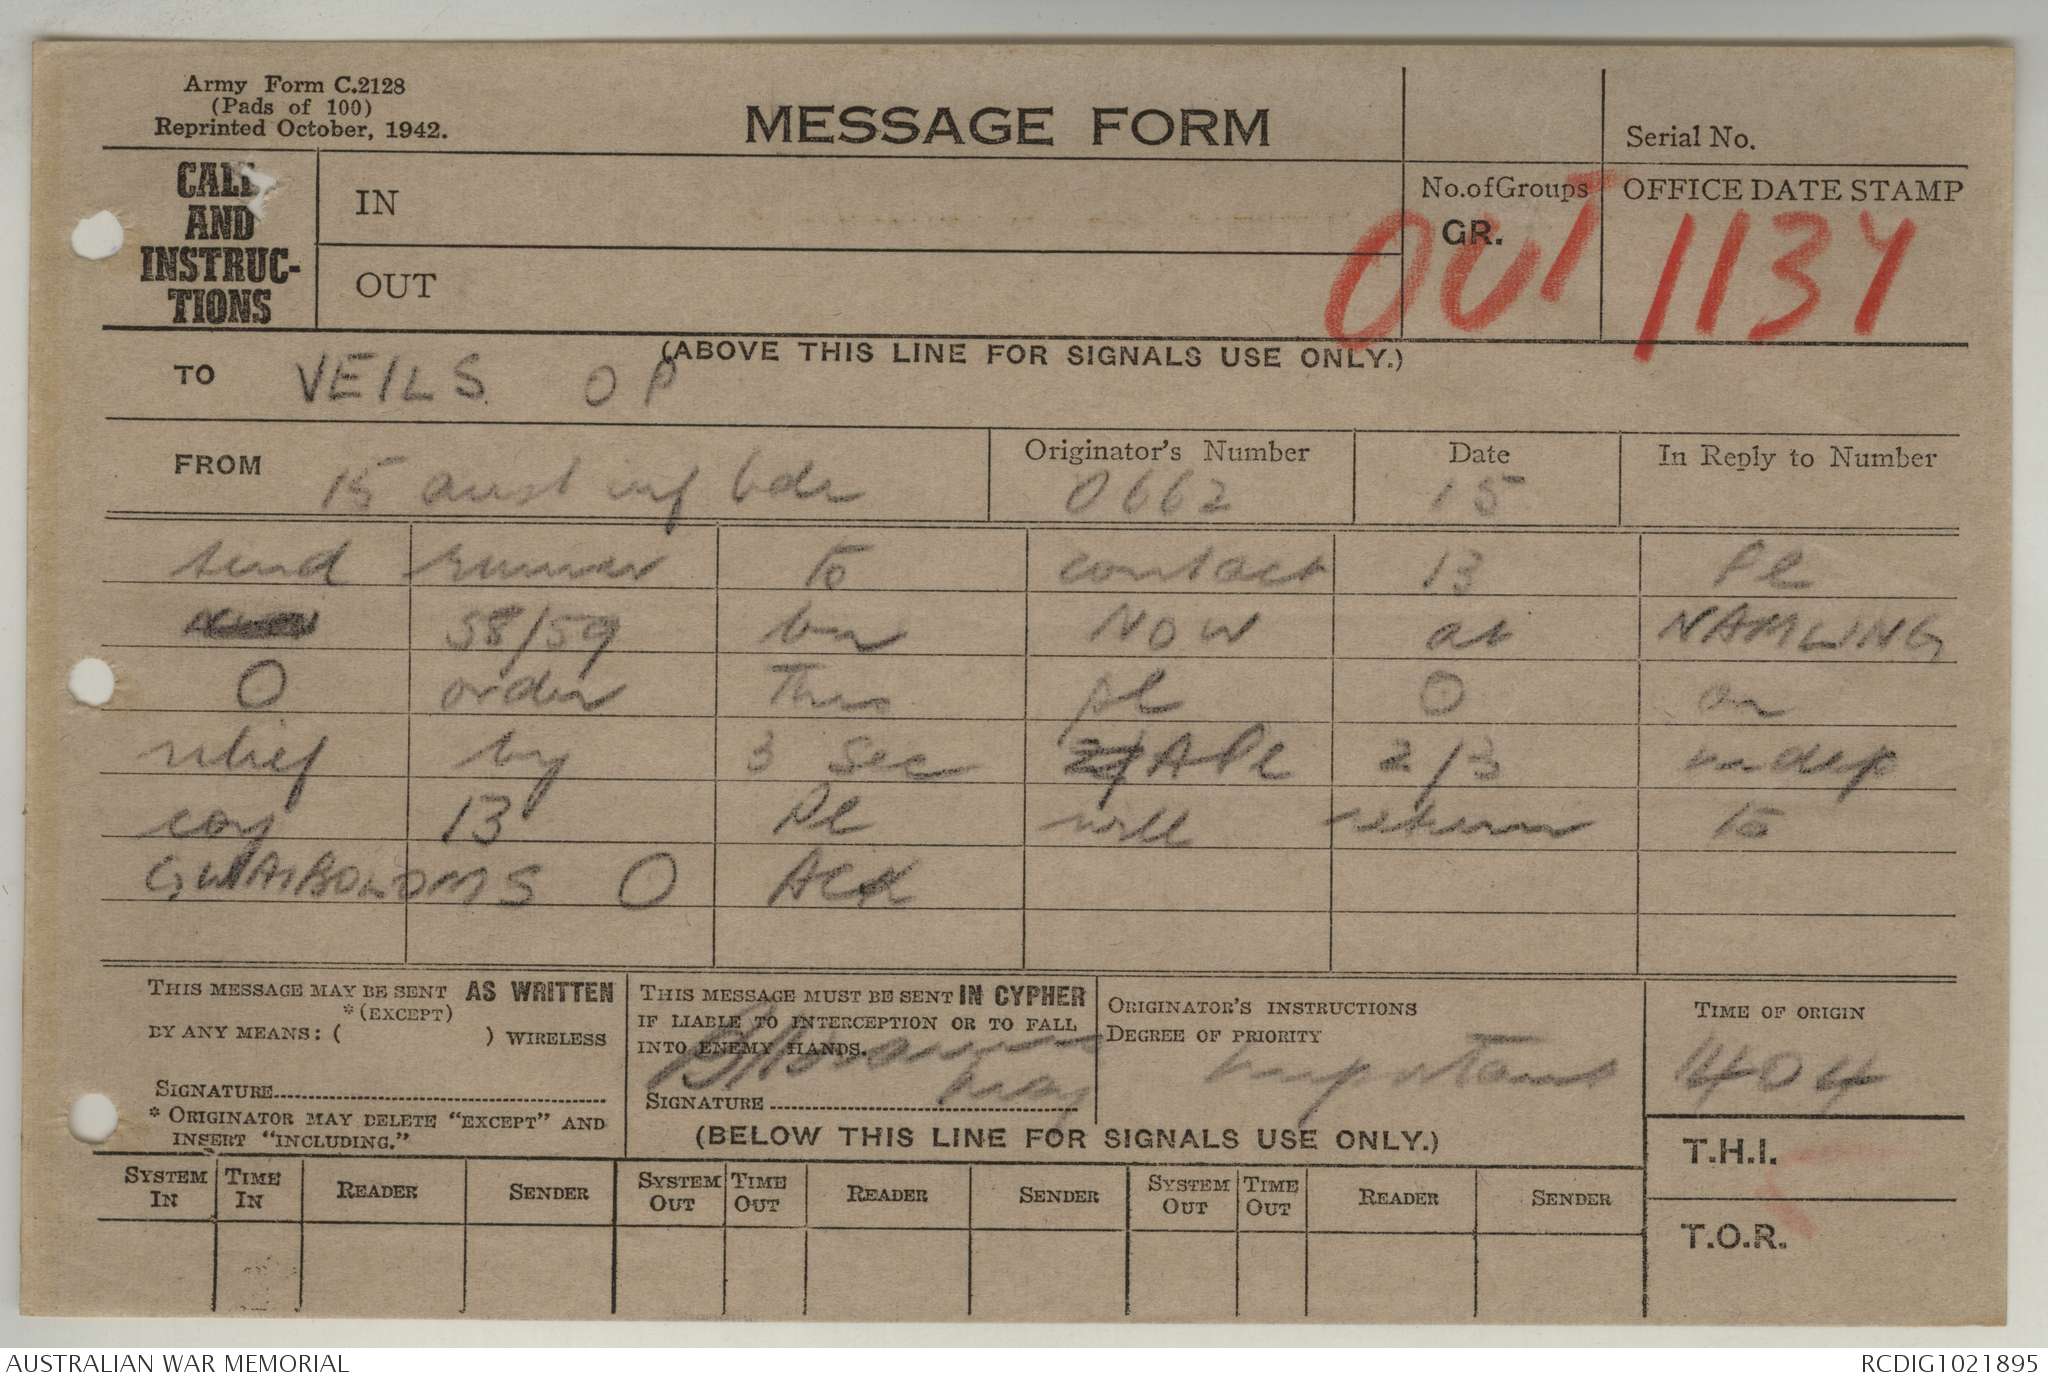 Army Form C.2128
(Pads of 100)
Reprinted October, 1942.
MESSAGE FORM
Serial No.
CALL
AND
INSTRUC-
TIONS
IN
OUT
No. of Groups
GR.
OFFICE DATE STAMP
OUT 1134
(ABOVE THIS LINE FOR SIGNALS USE ONLY.)
TO VEILS OP
FROM 15 aust inf bde
Originator's Number 0662
Date 15
In Reply to Number
send runner to contact 13 Pl
58/59 bn NOW at NAMLING
O order this pl O on
relief by 3 sec A Pl 2/3 indep
coy 13 Pl will return to
O ACK
THIS MESSAGE MAY BE SENT AS WRITTEN
*(EXCEPT)
BY ANY MEANS: ( ) WIRELESS
SIGNATURE
* ORIGINATOR MAY DELETE "EXCEPT" AND
INSERT "INCLUDING."
THIS MESSAGE MUST BE SENT IN CYPHER
IF LIABLE TO INTERCEPTION OR TO FALL
INTO ENEMY HANDS.
SIGNATURE
ORIGINATOR'S INSTRUCTIONS
DEGREE OF PRIORITY
Important
TIME OF ORIGIN
1404
(BELOW THIS LINE FOR SIGNALS USE ONLY.)
T.H.I.
T.O.R.
SYSTEM IN TIME IN READER SENDER SYSTEM OUT TIME OUT READER SENDER SYSTEM OUT TIME OUT READER SENDER
AUSTRALIAN WAR MEMORIAL
RCDIG1021895